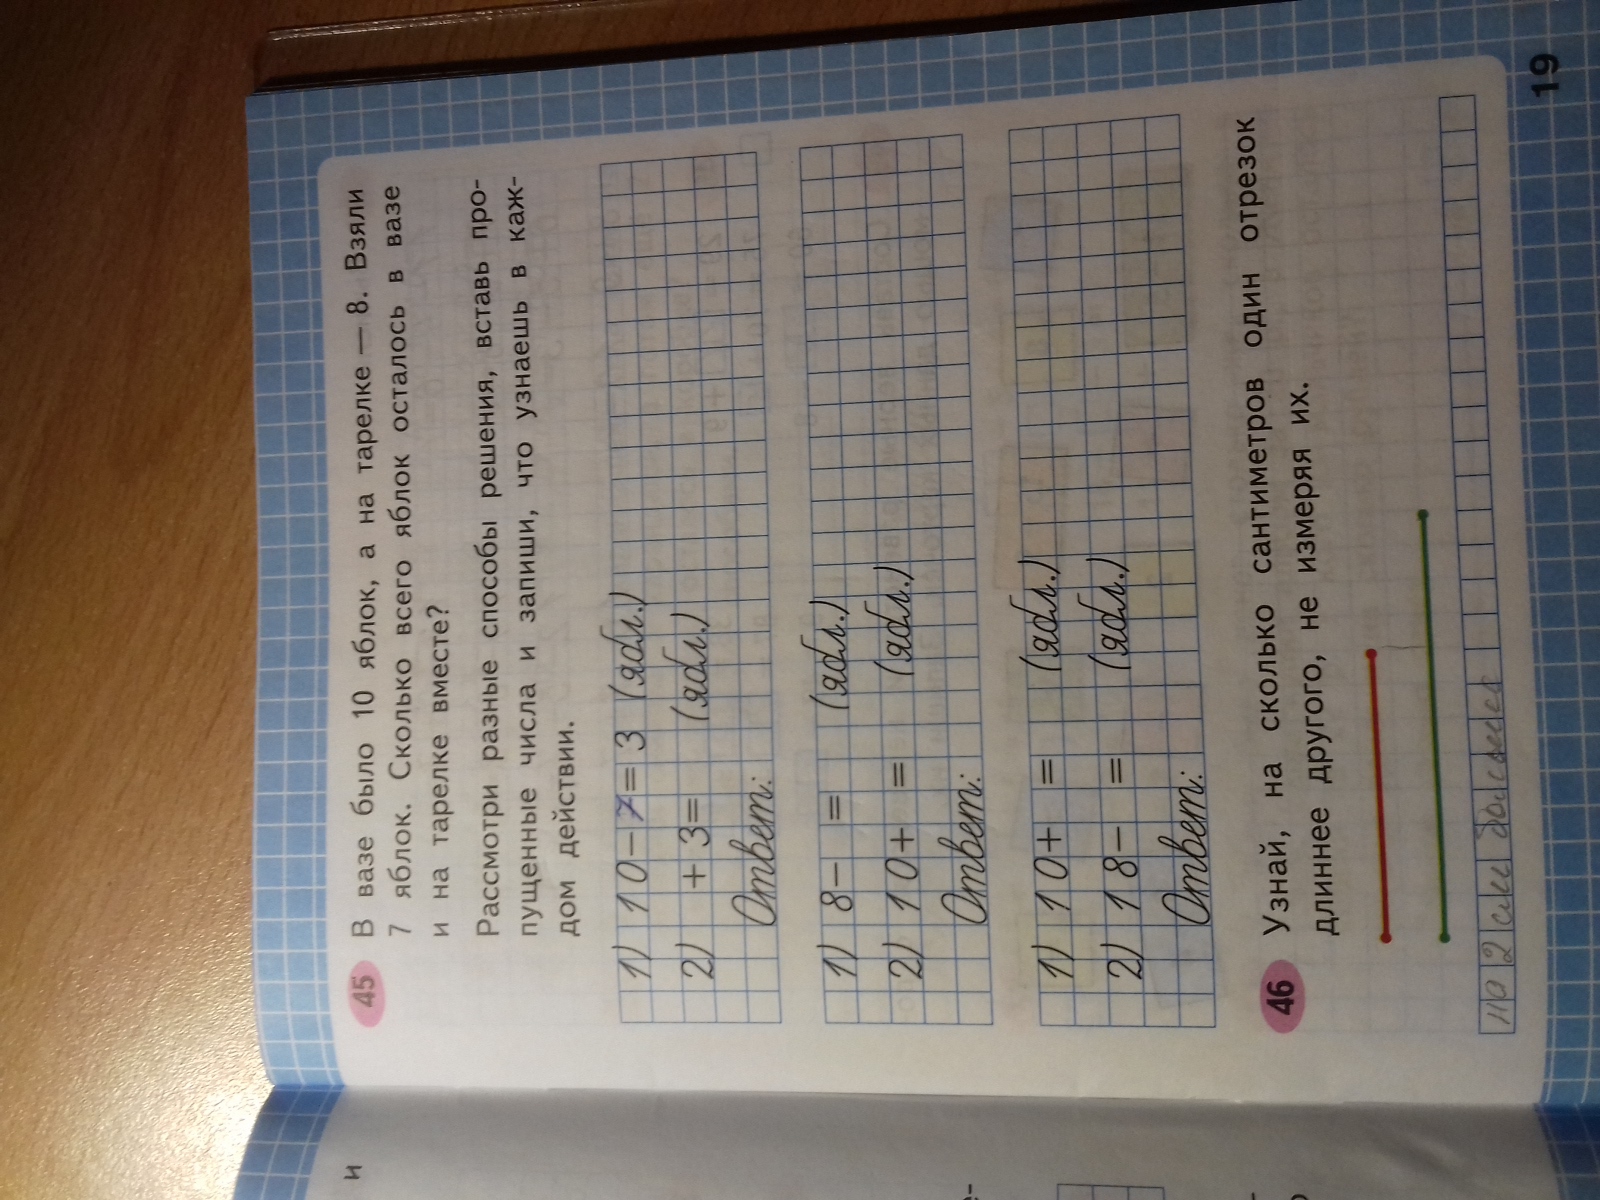 45 В вазе было 10 яблок, а на тарелке — 8. Взяли
7 яблок. Сколько всего яблок осталось в вазе
и на тарелке вместе?
Рассмотри разные способы решения, вставь про-
пущенные числа и запиши, что узнаешь в каж-
дом действии.
1) 10−7=3 (ябл.)
2) + 3= (ябл.)
Ответ:
1) 8− = (ябл.)
2) 10+ = (ябл.)
Ответ:
1) 10+ = (ябл.)
2) 18− = (ябл.)
Ответ:
46 Узнай, на сколько сантиметров один отрезок
длиннее другого, не измеряя их.
на 2 см длиннее
19
и